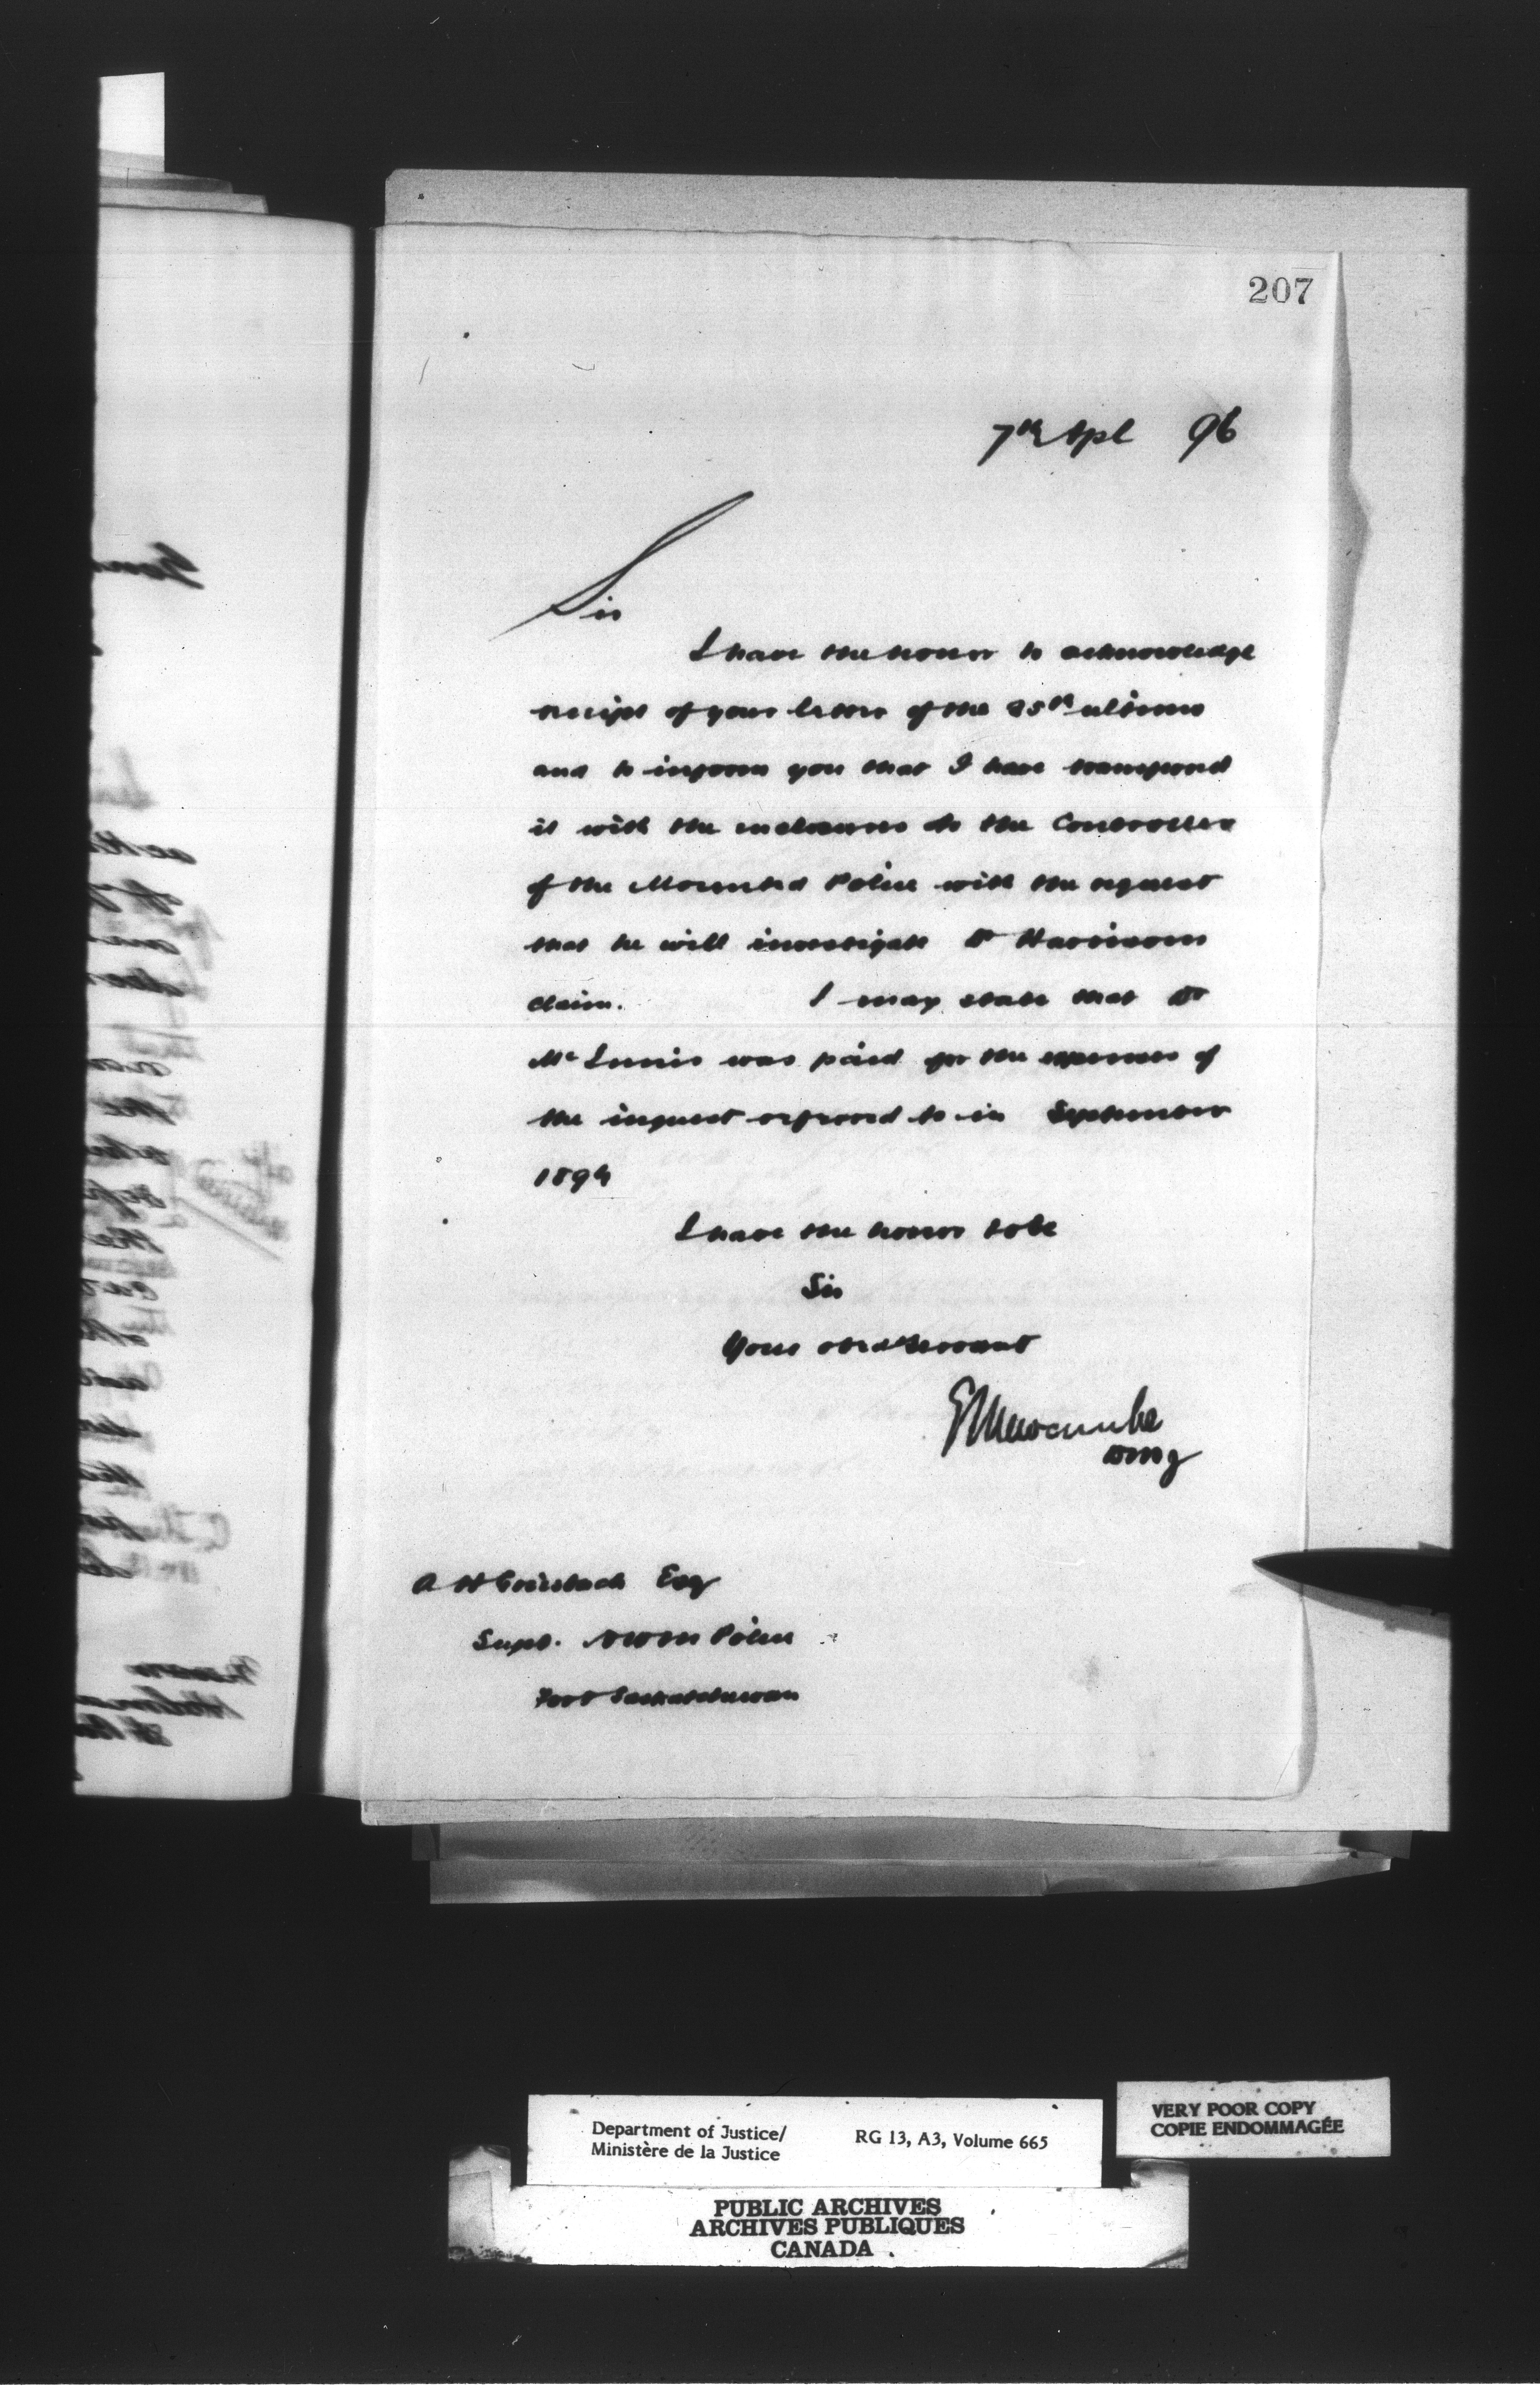 207
7th Apl 96
Sir
I have the honor to acknowledge
receipt of your letter of the 25th ultimo
and to inform you that I have transferred
it with the enclosures to the Controller
of the Mounted Police with the request
that he will investigate Dr Harrisons
claim. I may state that Dr
McInnis was paid for the expenses of
the inquest referred to in September
1894
I have the honor to be
Sir
Your obdt servant
E L Newcombe
DMJ
A H Griesbach Esq
Supt. NWM Police
Fort Saskatchewan
Department of Justice/
Ministère de la Justice
RG 13, A3, Volume 665
VERY POOR COPY
COPIE ENDOMMAGÉE
PUBLIC ARCHIVES
ARCHIVES PUBLIQUES
CANADA